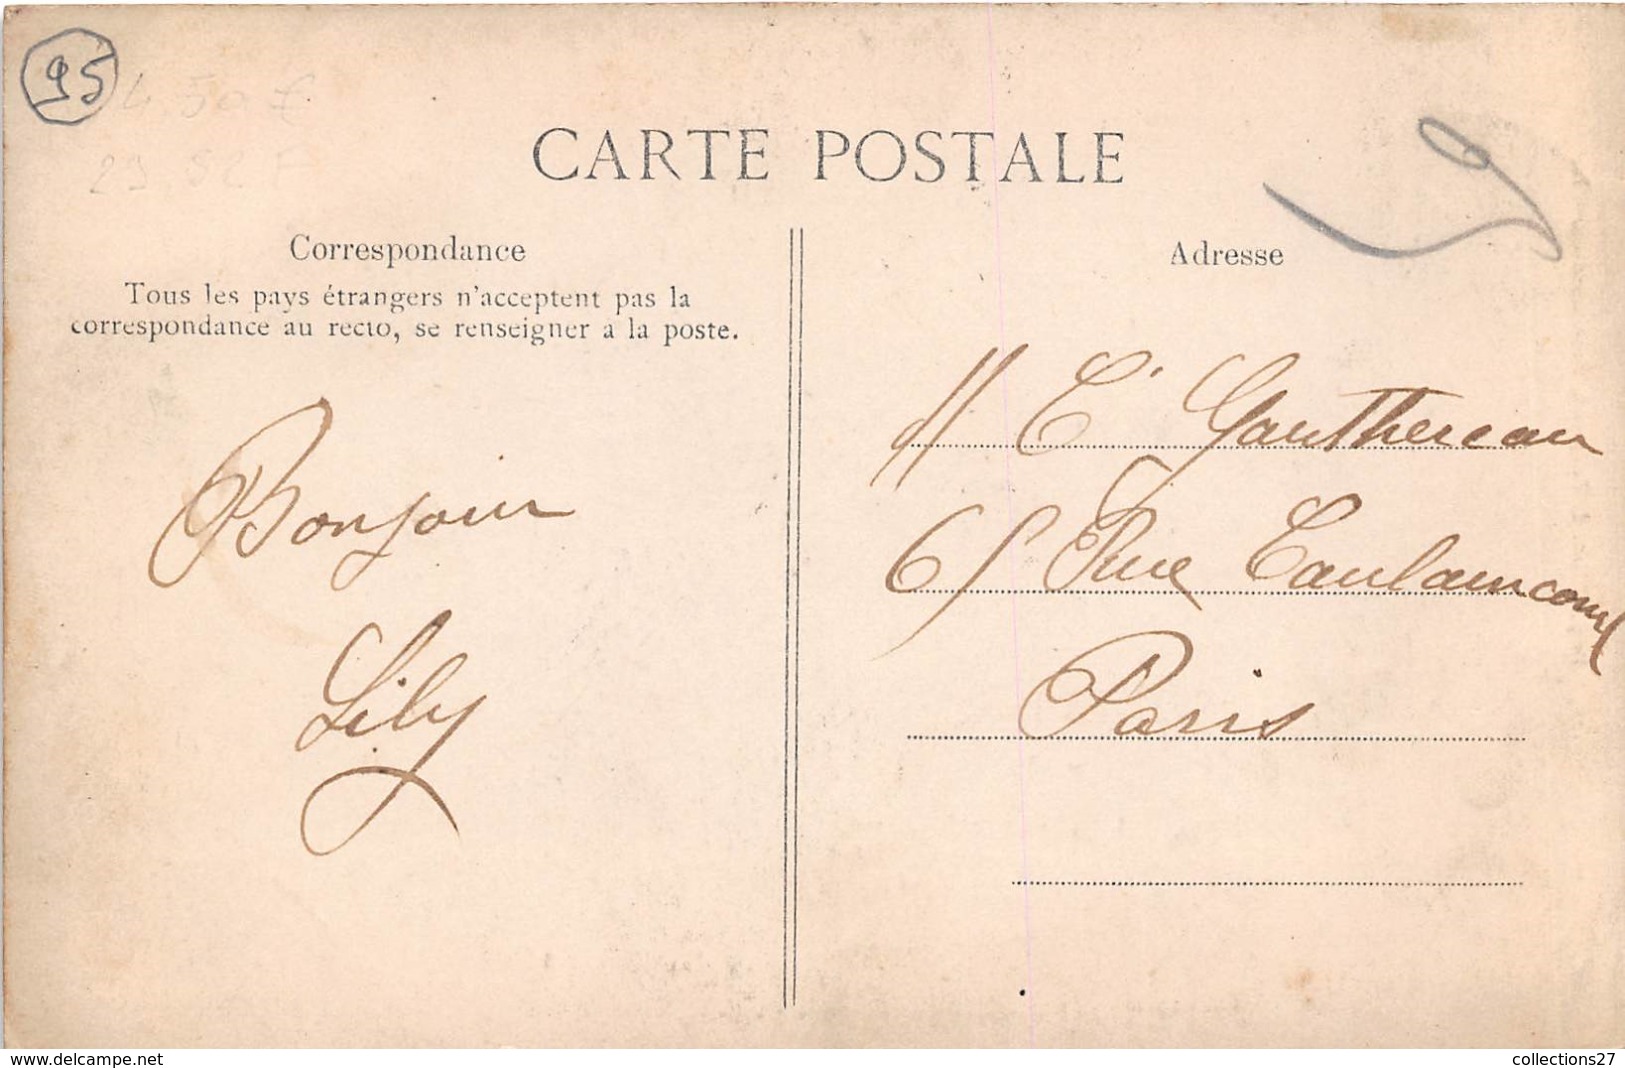 95
4,50 €
CARTE POSTALE
Correspondance
Tous les pays étrangers n'acceptent pas la
correspondance au recto, se renseigner a la poste.
Bonjour
Lily
Adresse
M E. Gauthereau
65 Rue Caulaincourt
Paris
www.delcampe.net
collections27